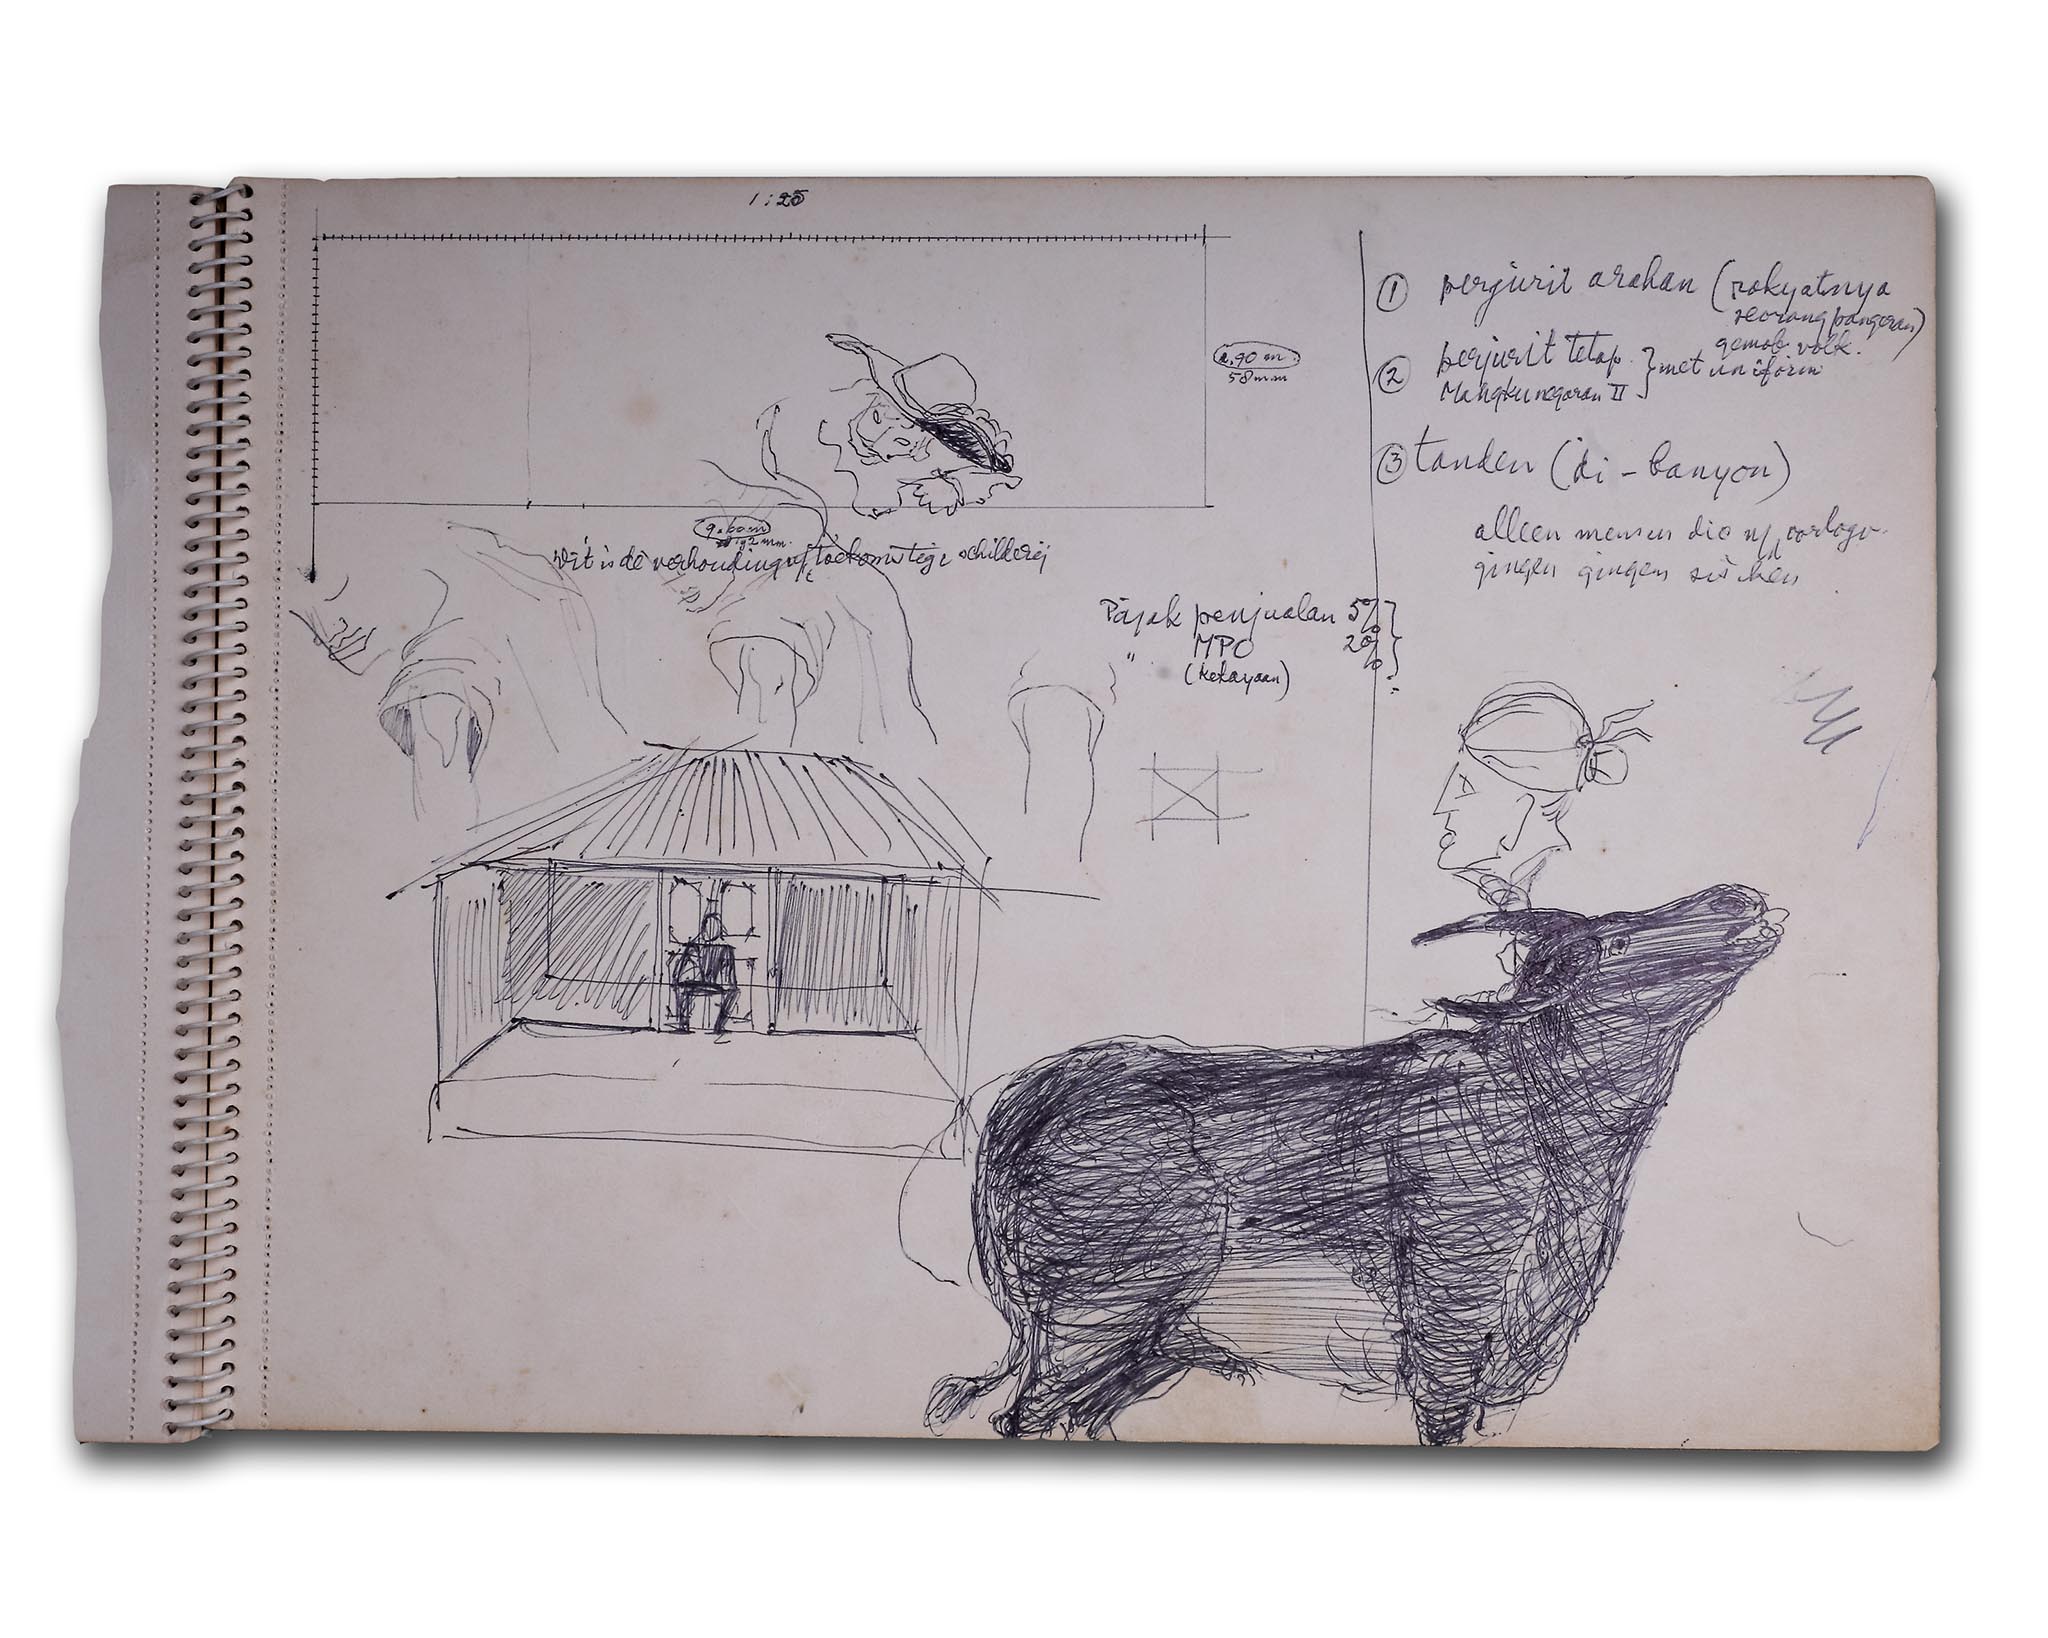 1:25
2,90 m.
58 mm
9.60 m
192 mm.
Dit is de verhouding v/ toekomstige schilderij
① perjurit arahan (rakyatnya
seorang pangeran)
gemob. volk.
② perjurit tetap } met uniform
Mangkunegaran II
③ tanden (di-banyon)
alleen mensen die
gingen gingen
Pajak penjualan 5%
" MPO 20%
(kekayaan)